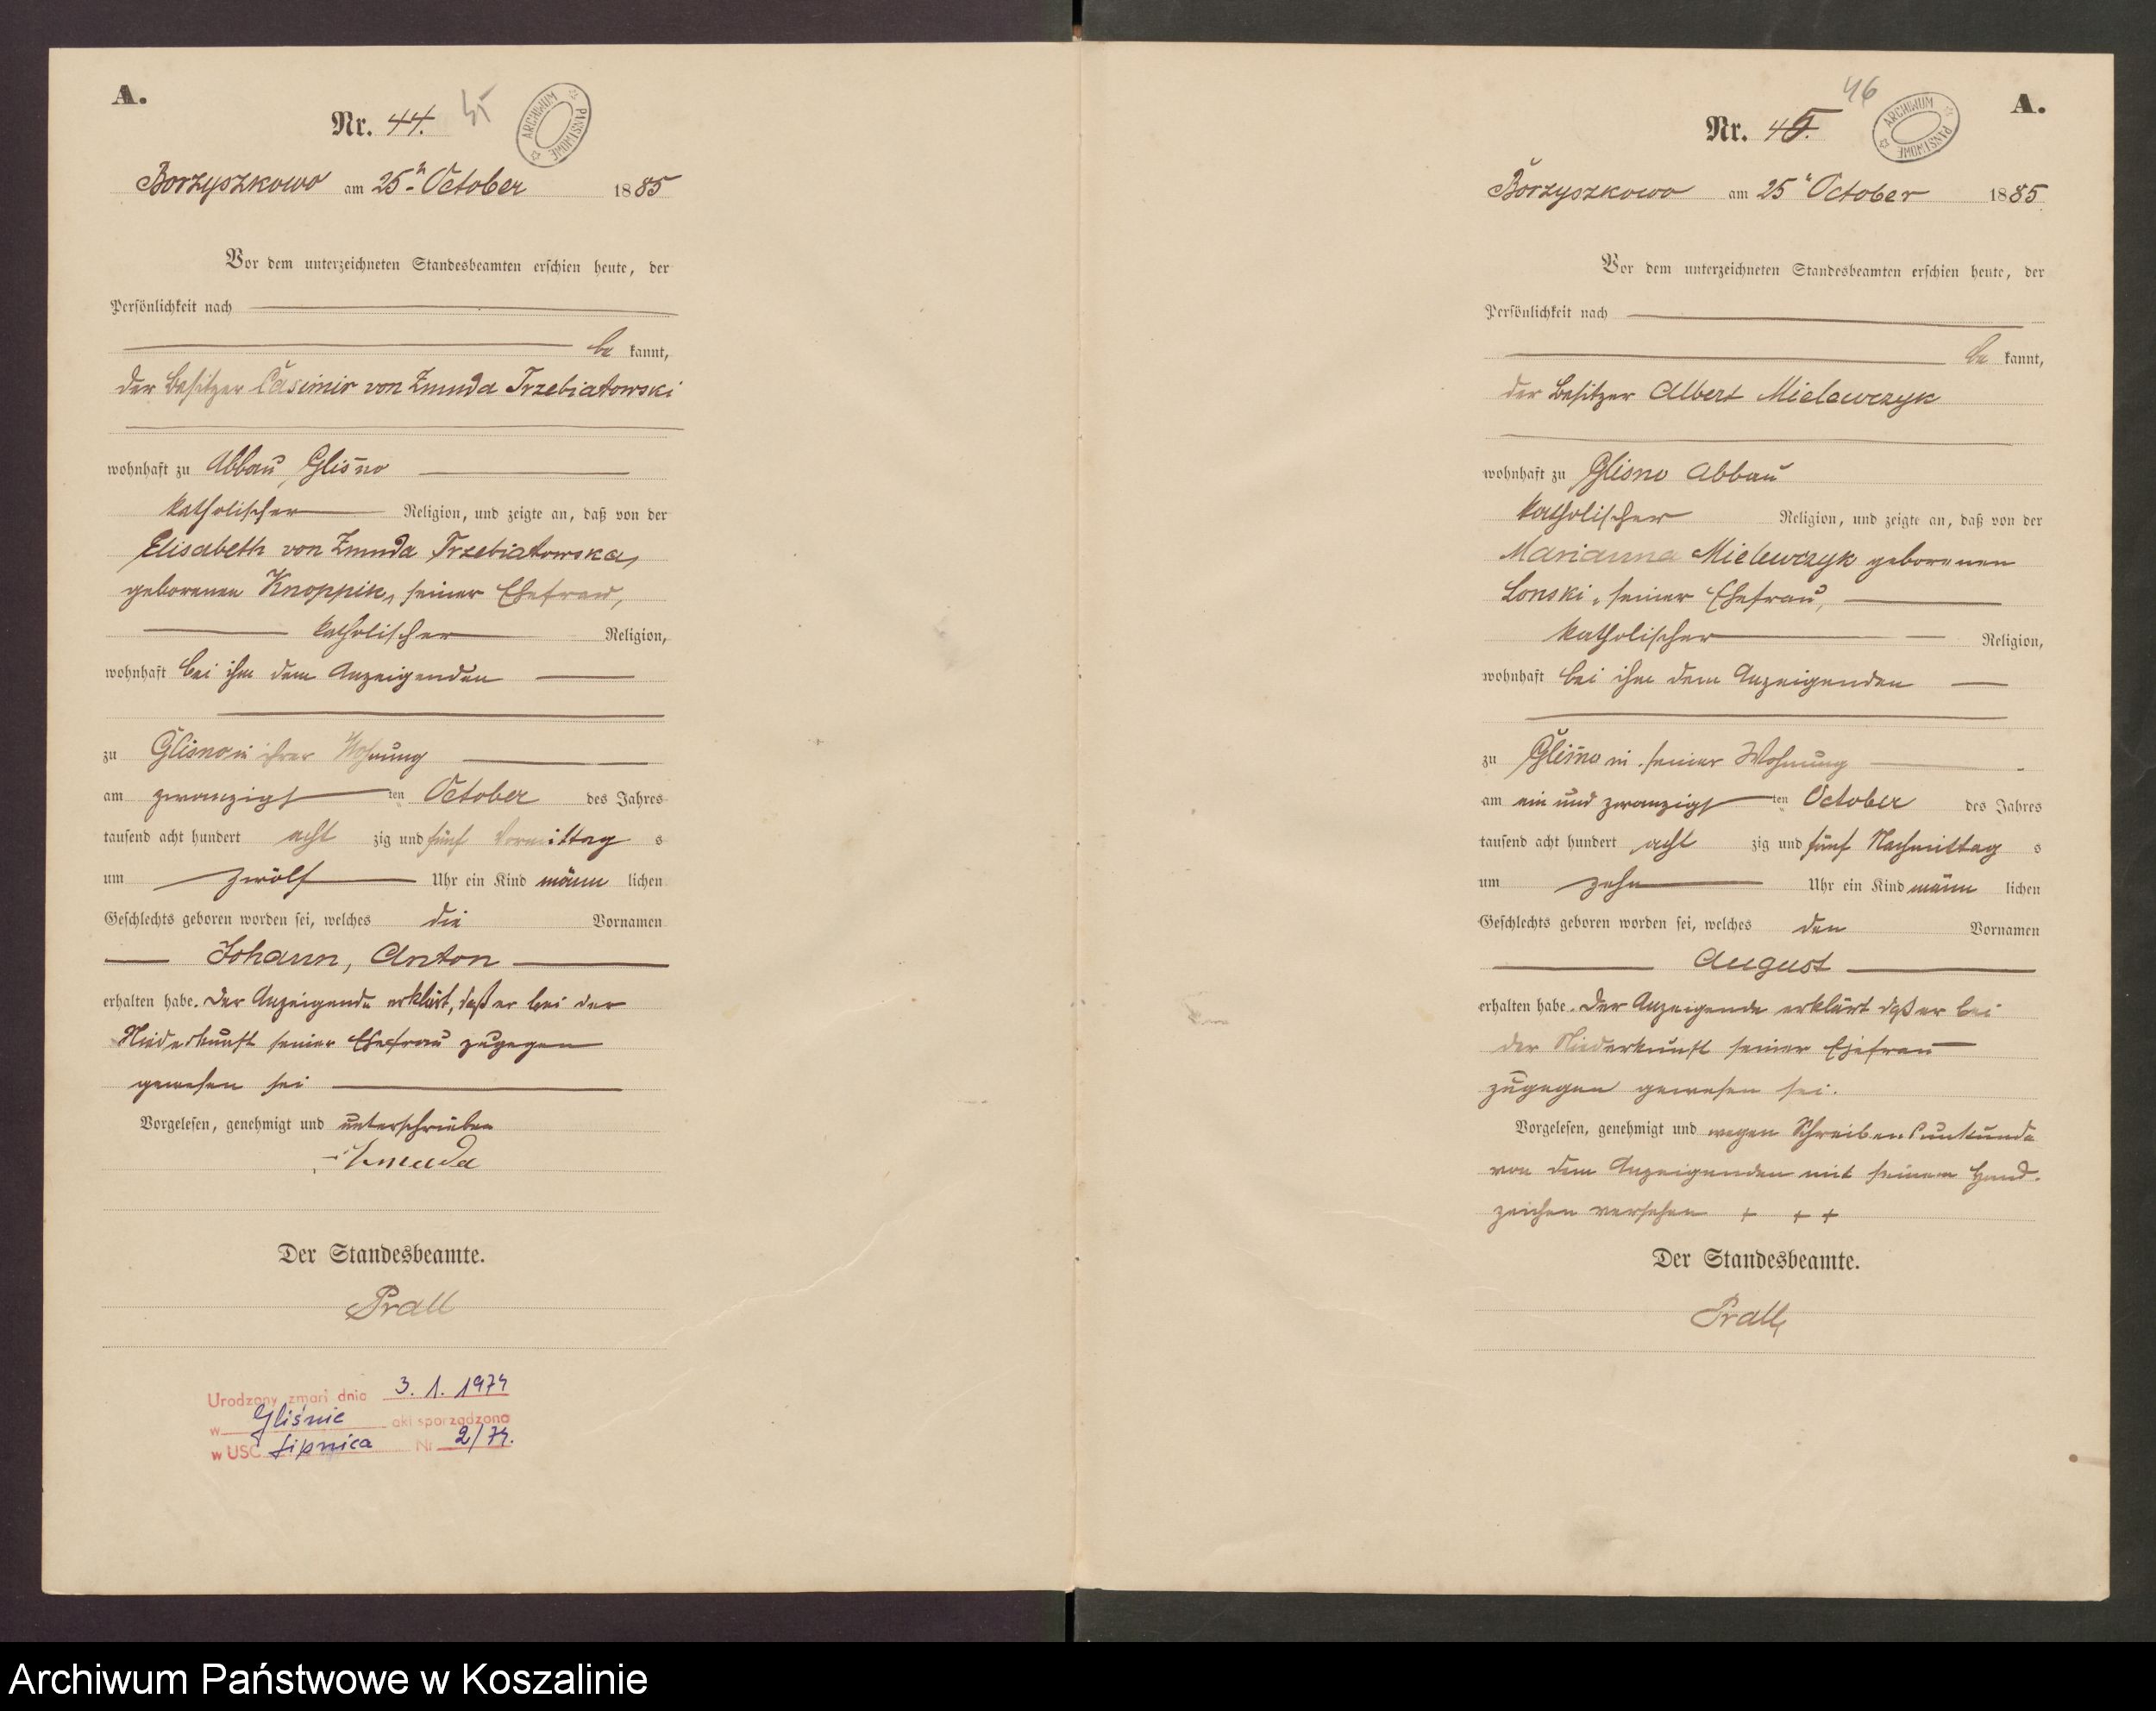 A.
Nr. 44. 45
ARCHIWUM PAŃSTWOWE
Borzyszkowo am 25ten October 1885
Vor dem unterzeichneten Standesbeamten erschien heute, der
Persönlichkeit nach
be kannt,
der Besitzer Casimir von Zmuda Trzebiatowski
wohnhaft zu Abbau Glisno
katholischer Religion, und zeigte an, daß von der
Elisabeth von Zmuda Trzebiatowska,
geborenen Knoppik, seiner Ehefrau,
katholischer Religion,
wohnhaft bei ihm dem Anzeigenden
zu Glisno in ihrer Wohnung
am zwanzigsten October des Jahres
tausend acht hundert acht zig und fünf Vormittag s
um zwölf Uhr ein Kind männ lichen
Geschlechts geboren worden sei, welches die Vornamen
Johann, Anton
erhalten habe. Der Anzeigende erklärt, daß er bei der
Niederkunft seiner Ehefrau zugegen
gewesen sei
Vorgelesen, genehmigt und unterschrieben
Zmuda
Der Standesbeamte.
Prall
Urodzony zmarł dnia 3. 1. 1974
w Gliśnie akt sporządzono
w USC Lipnica Nr 2/74.
A.
Nr. 45. 46
ARCHIWUM PAŃSTWOWE
Borzyszkowo am 25 October 1885
Vor dem unterzeichneten Standesbeamten erschien heute, der
Persönlichkeit nach
be kannt,
der Besitzer Albert Mielewczyk
wohnhaft zu Glisno Abbau
katholischer Religion, und zeigte an, daß von der
Marianna Mielewczyk geborenen
Lonski, seiner Ehefrau,
katholischer Religion,
wohnhaft bei ihm dem Anzeigenden
zu Glisno in seiner Wohnung
am ein und zwanzigsten October des Jahres
tausend acht hundert acht zig und fünf Nachmittag s
um zehn Uhr ein Kind männ lichen
Geschlechts geboren worden sei, welches den Vornamen
August
erhalten habe. Der Anzeigende erklärt daß er bei
der Niederkunft seiner Ehefrau
zugegen gewesen sei.
Vorgelesen, genehmigt und wegen Schreibensunkunde
von dem Anzeigenden mit seinem Hand-
zeichen versehen + + +
Der Standesbeamte.
Prall
Archiwum Państwowe w Koszalinie